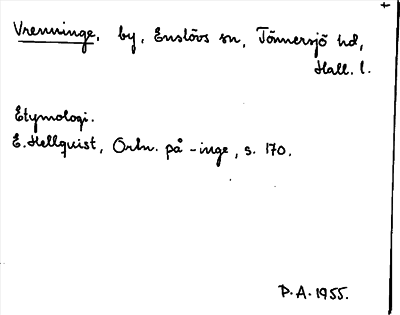 +
Vrenninge, by, Enslövs sn, Tönnersjö hd,
Hall. l.
Etymologi.
E. Hellquist, Ortn. på -inge, s. 170.
P.A. 1955.